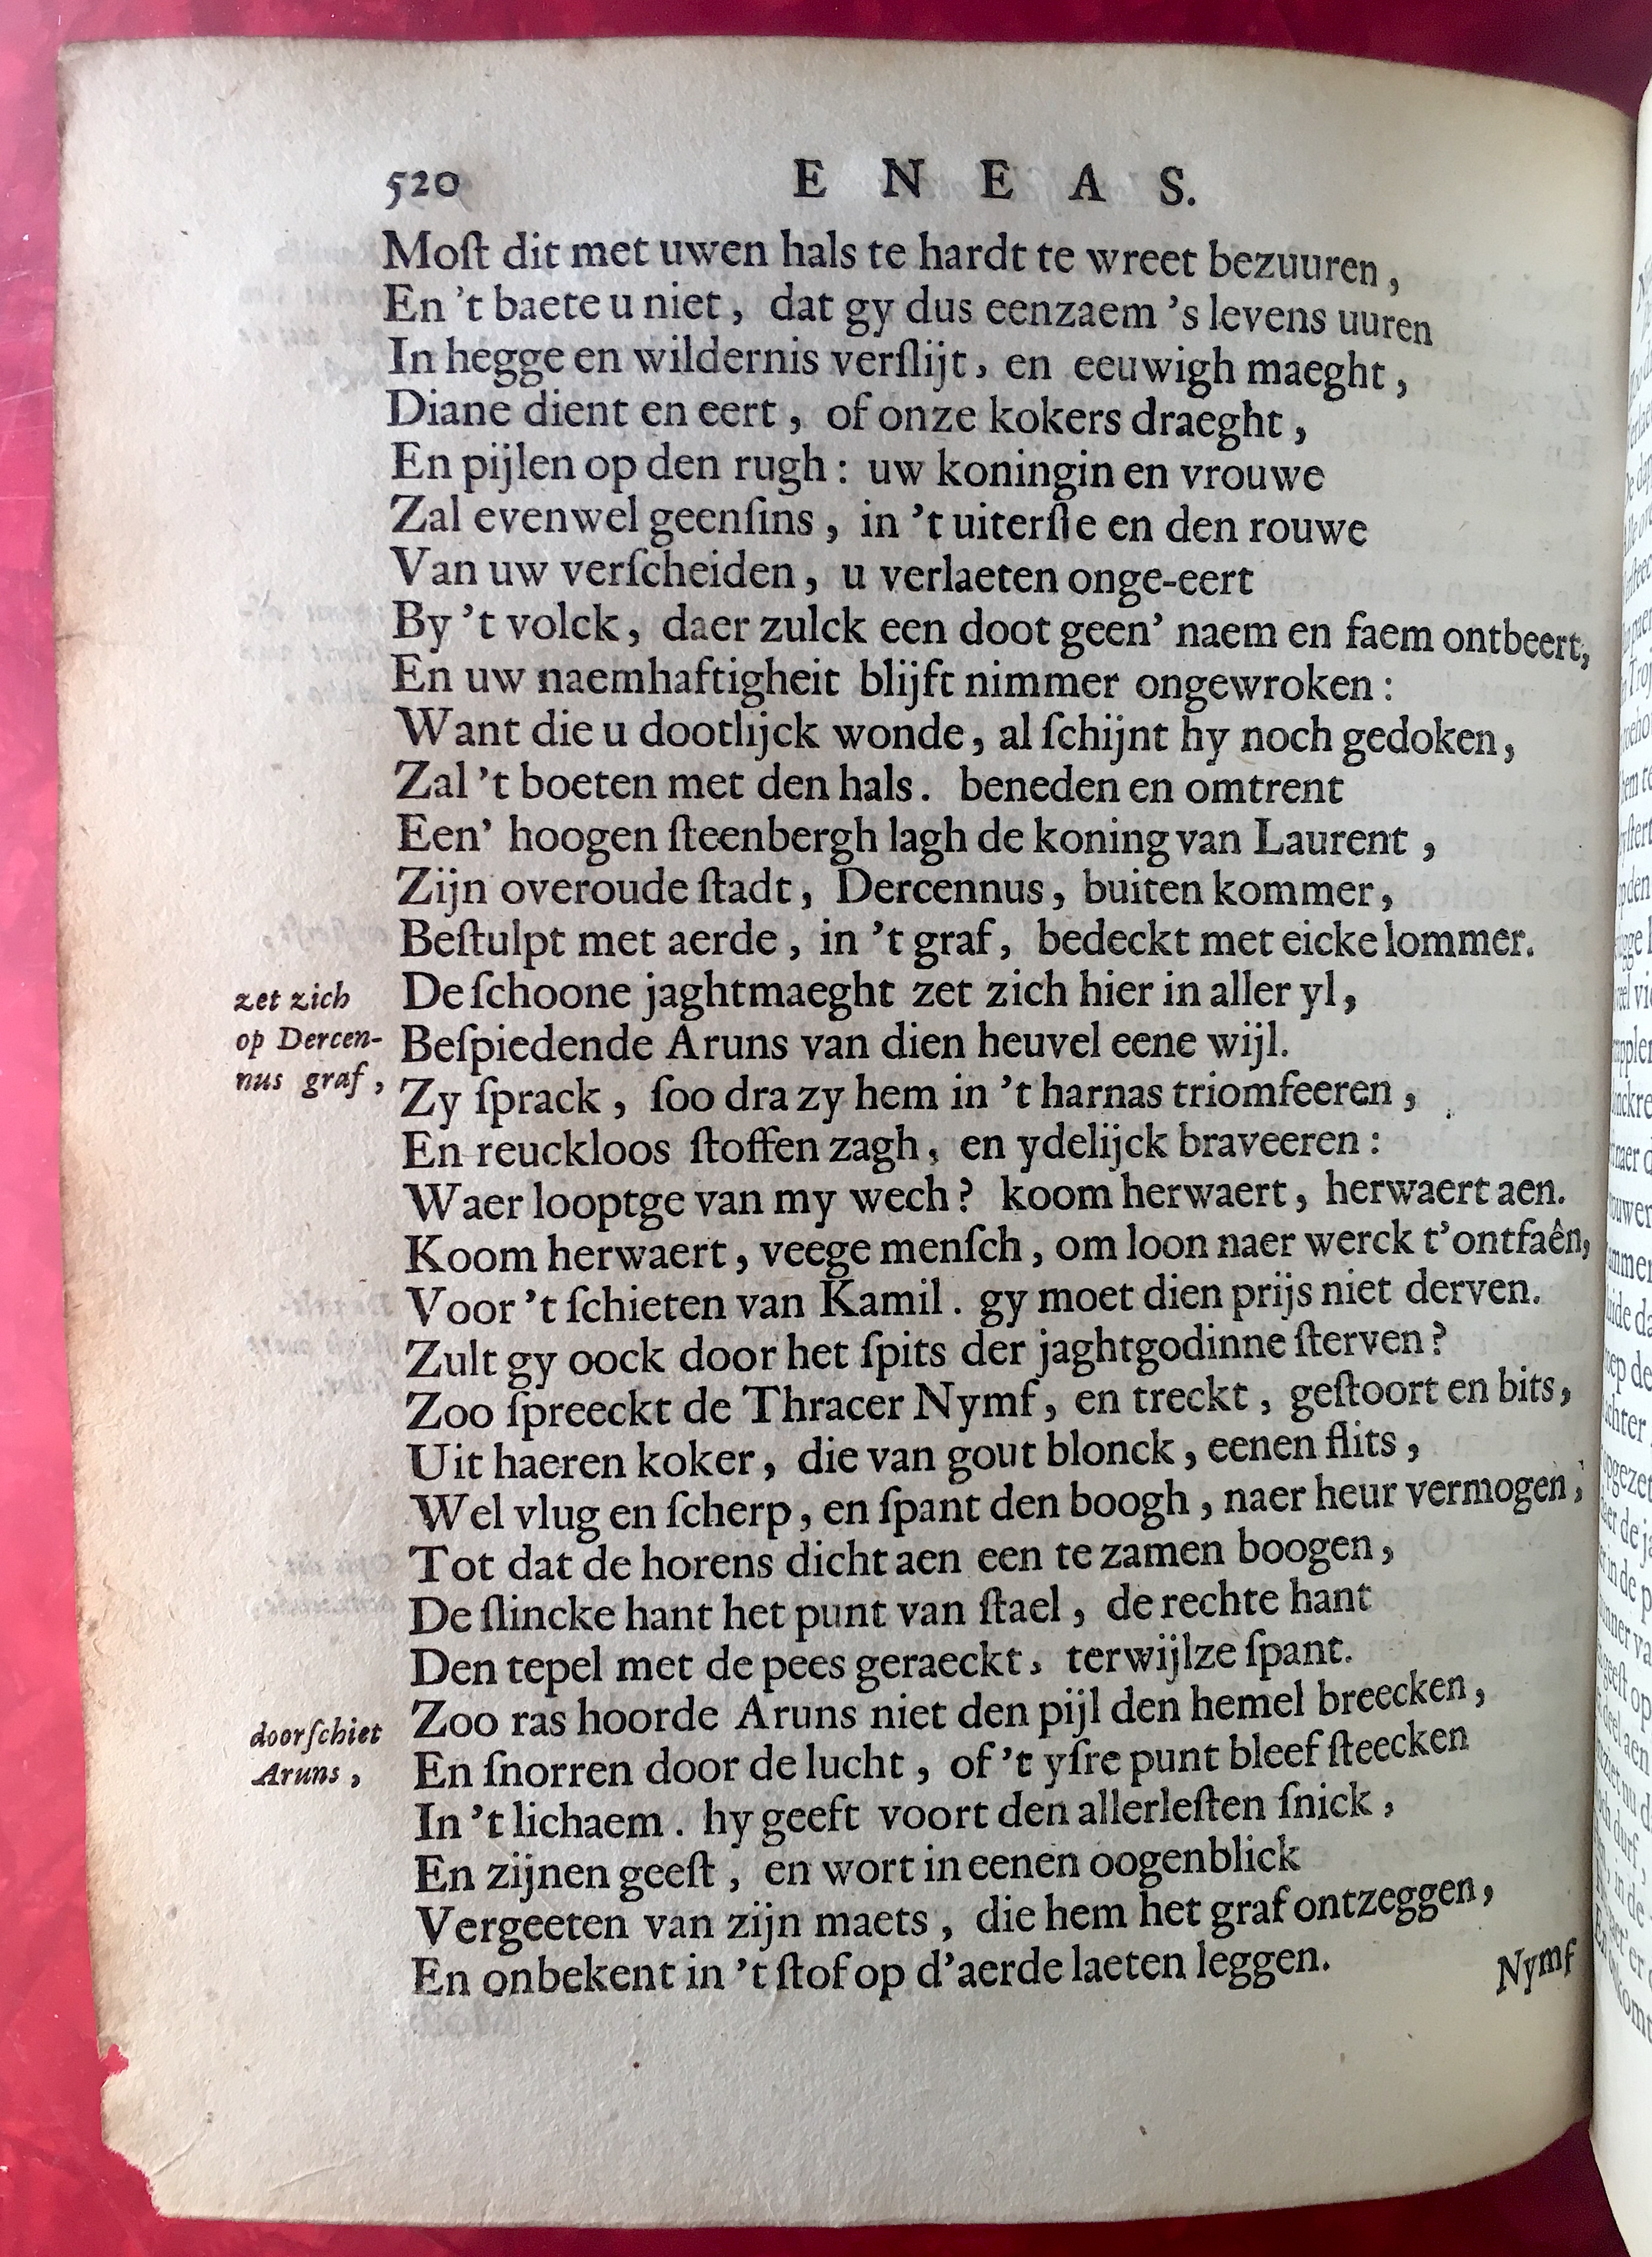 520 E N E A S.
Moſt dit met uwen hals te hardt te wreet bezuuren,
En 't baete u niet, dat gy dus eenzaem 's levens uuren
In hegge en wildernis verſlijt, en eeuwigh maeght,
Diane dient en eert, of onze kokers draeght,
En pijlen op den rugh: uw koningin en vrouwe
Zal evenwel geenſins, in 't uiterſte en den rouwe
Van uw verſcheiden, u verlaeten onge-eert
By 't volck, daer zulck een doot geen' naem en faem ontbeert,
En uw naemhaftigheit blijft nimmer ongewroken:
Want die u dootlijck wonde, al ſchijnt hy noch gedoken,
Zal 't boeten met den hals. beneden en omtrent
Een' hoogen ſteenbergh lagh de koning van Laurent,
Zijn overoude ſtadt, Dercennus, buiten kommer,
Beſtulpt met aerde, in 't graf, bedeckt met eicke lommer.
zet zich
op Dercen-
nus graf,
De ſchoone jaghtmaeght zet zich hier in aller yl,
Beſpiedende Aruns van dien heuvel eene wijl.
Zy ſprack, ſoo dra zy hem in 't harnas triomfeeren,
En reuckloos ſtoffen zagh, en ydelijck braveeren:
Waer looptge van my wech? koom herwaert, herwaert aen.
Koom herwaert, veege menſch, om loon naer werck t'ontfaên,
Voor 't ſchieten van Kamil. gy moet dien prijs niet derven.
Zult gy oock door het ſpits der jaghtgodinne ſterven?
Zoo ſpreeckt de Thracer Nymf, en treckt, geſtoort en bits,
Uit haeren koker, die van gout blonck, eenen flits,
Wel vlug en ſcherp, en ſpant den boogh, naer heur vermogen,
Tot dat de horens dicht aen een te zamen boogen,
De ſlincke hant het punt van ſtael, de rechte hant
Den tepel met de pees geraeckt, terwijlze ſpant.
doorſchiet
Aruns,
Zoo ras hoorde Aruns niet den pijl den hemel breecken,
En ſnorren door de lucht, of 't yſre punt bleef ſteecken
In 't lichaem. hy geeft voort den allerleſten ſnick,
En zijnen geeſt, en wort in eenen oogenblick
Vergeeten van zijn maets, die hem het graf ontzeggen,
En onbekent in 't ſtof op d'aerde laeten leggen.
Nymf